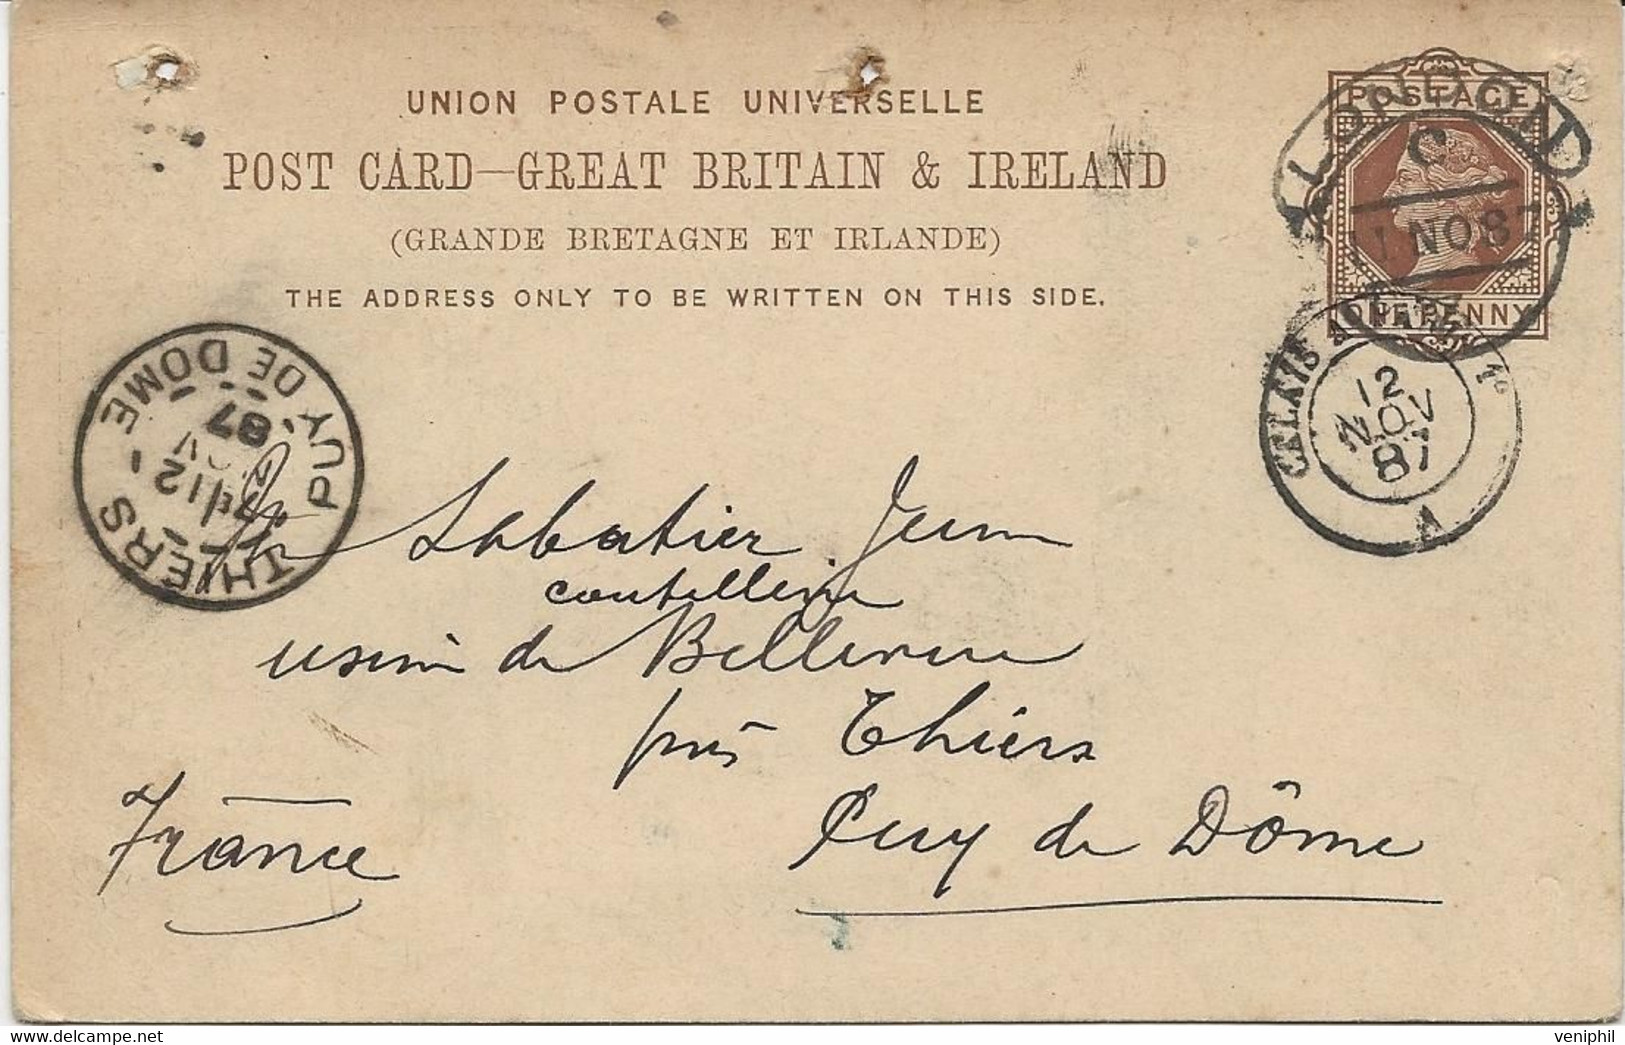 UNION POSTALE UNIVERSELLE
POST CARD—GREAT BRITAIN & IRELAND
(GRANDE BRETAGNE ET IRLANDE)
THE ADDRESS ONLY TO BE WRITTEN ON THIS SIDE.
POSTAGE
ONE PENNY
LONDON
C
11 NO 87
CALAIS A PARIS 1º
12
NOV
87
A
THIERS
PUY DE DOME
12
87
Sabatier Jeune
coutellerie
usine de Bellevue
près Thiers
Puy de Dôme
France
veniphil